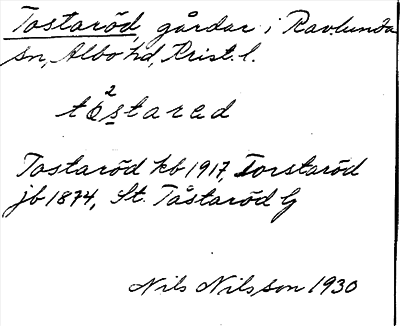 Tostaröd, gårdar i Ravlunda
sn, Albo hd, Krist. l.
tò²stared
Tostaröd kb 1917, Torstaröd
jb 1874, St. Tåstaröd G
Nils Nilsson 1930